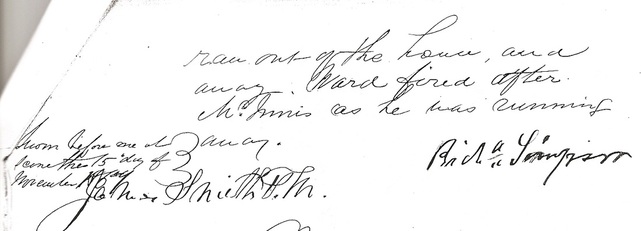 ran out of the house, and
away. Ward fired after
McInnis as he was running
away.
Sworn before me at
Scone this 15 day of
November
James Smith P.M.
Richd Simpson